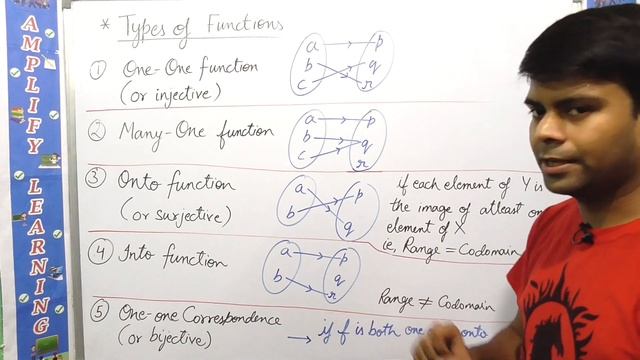 * Types of Functions
① One-One function
(or injective)
a b c
p q r
② Many-One function
a b c
p q r
③ Onto function
(or surjective)
a b
p q
if each element of Y is
the image of atleast on
element of X
i.e, Range = Codomain
④ Into function
a b
p q r
Range ≠ Codomain
⑤ One-one Correspondence
(or bijective)
→ if f is both one onto
AMPLIFY LEARNING